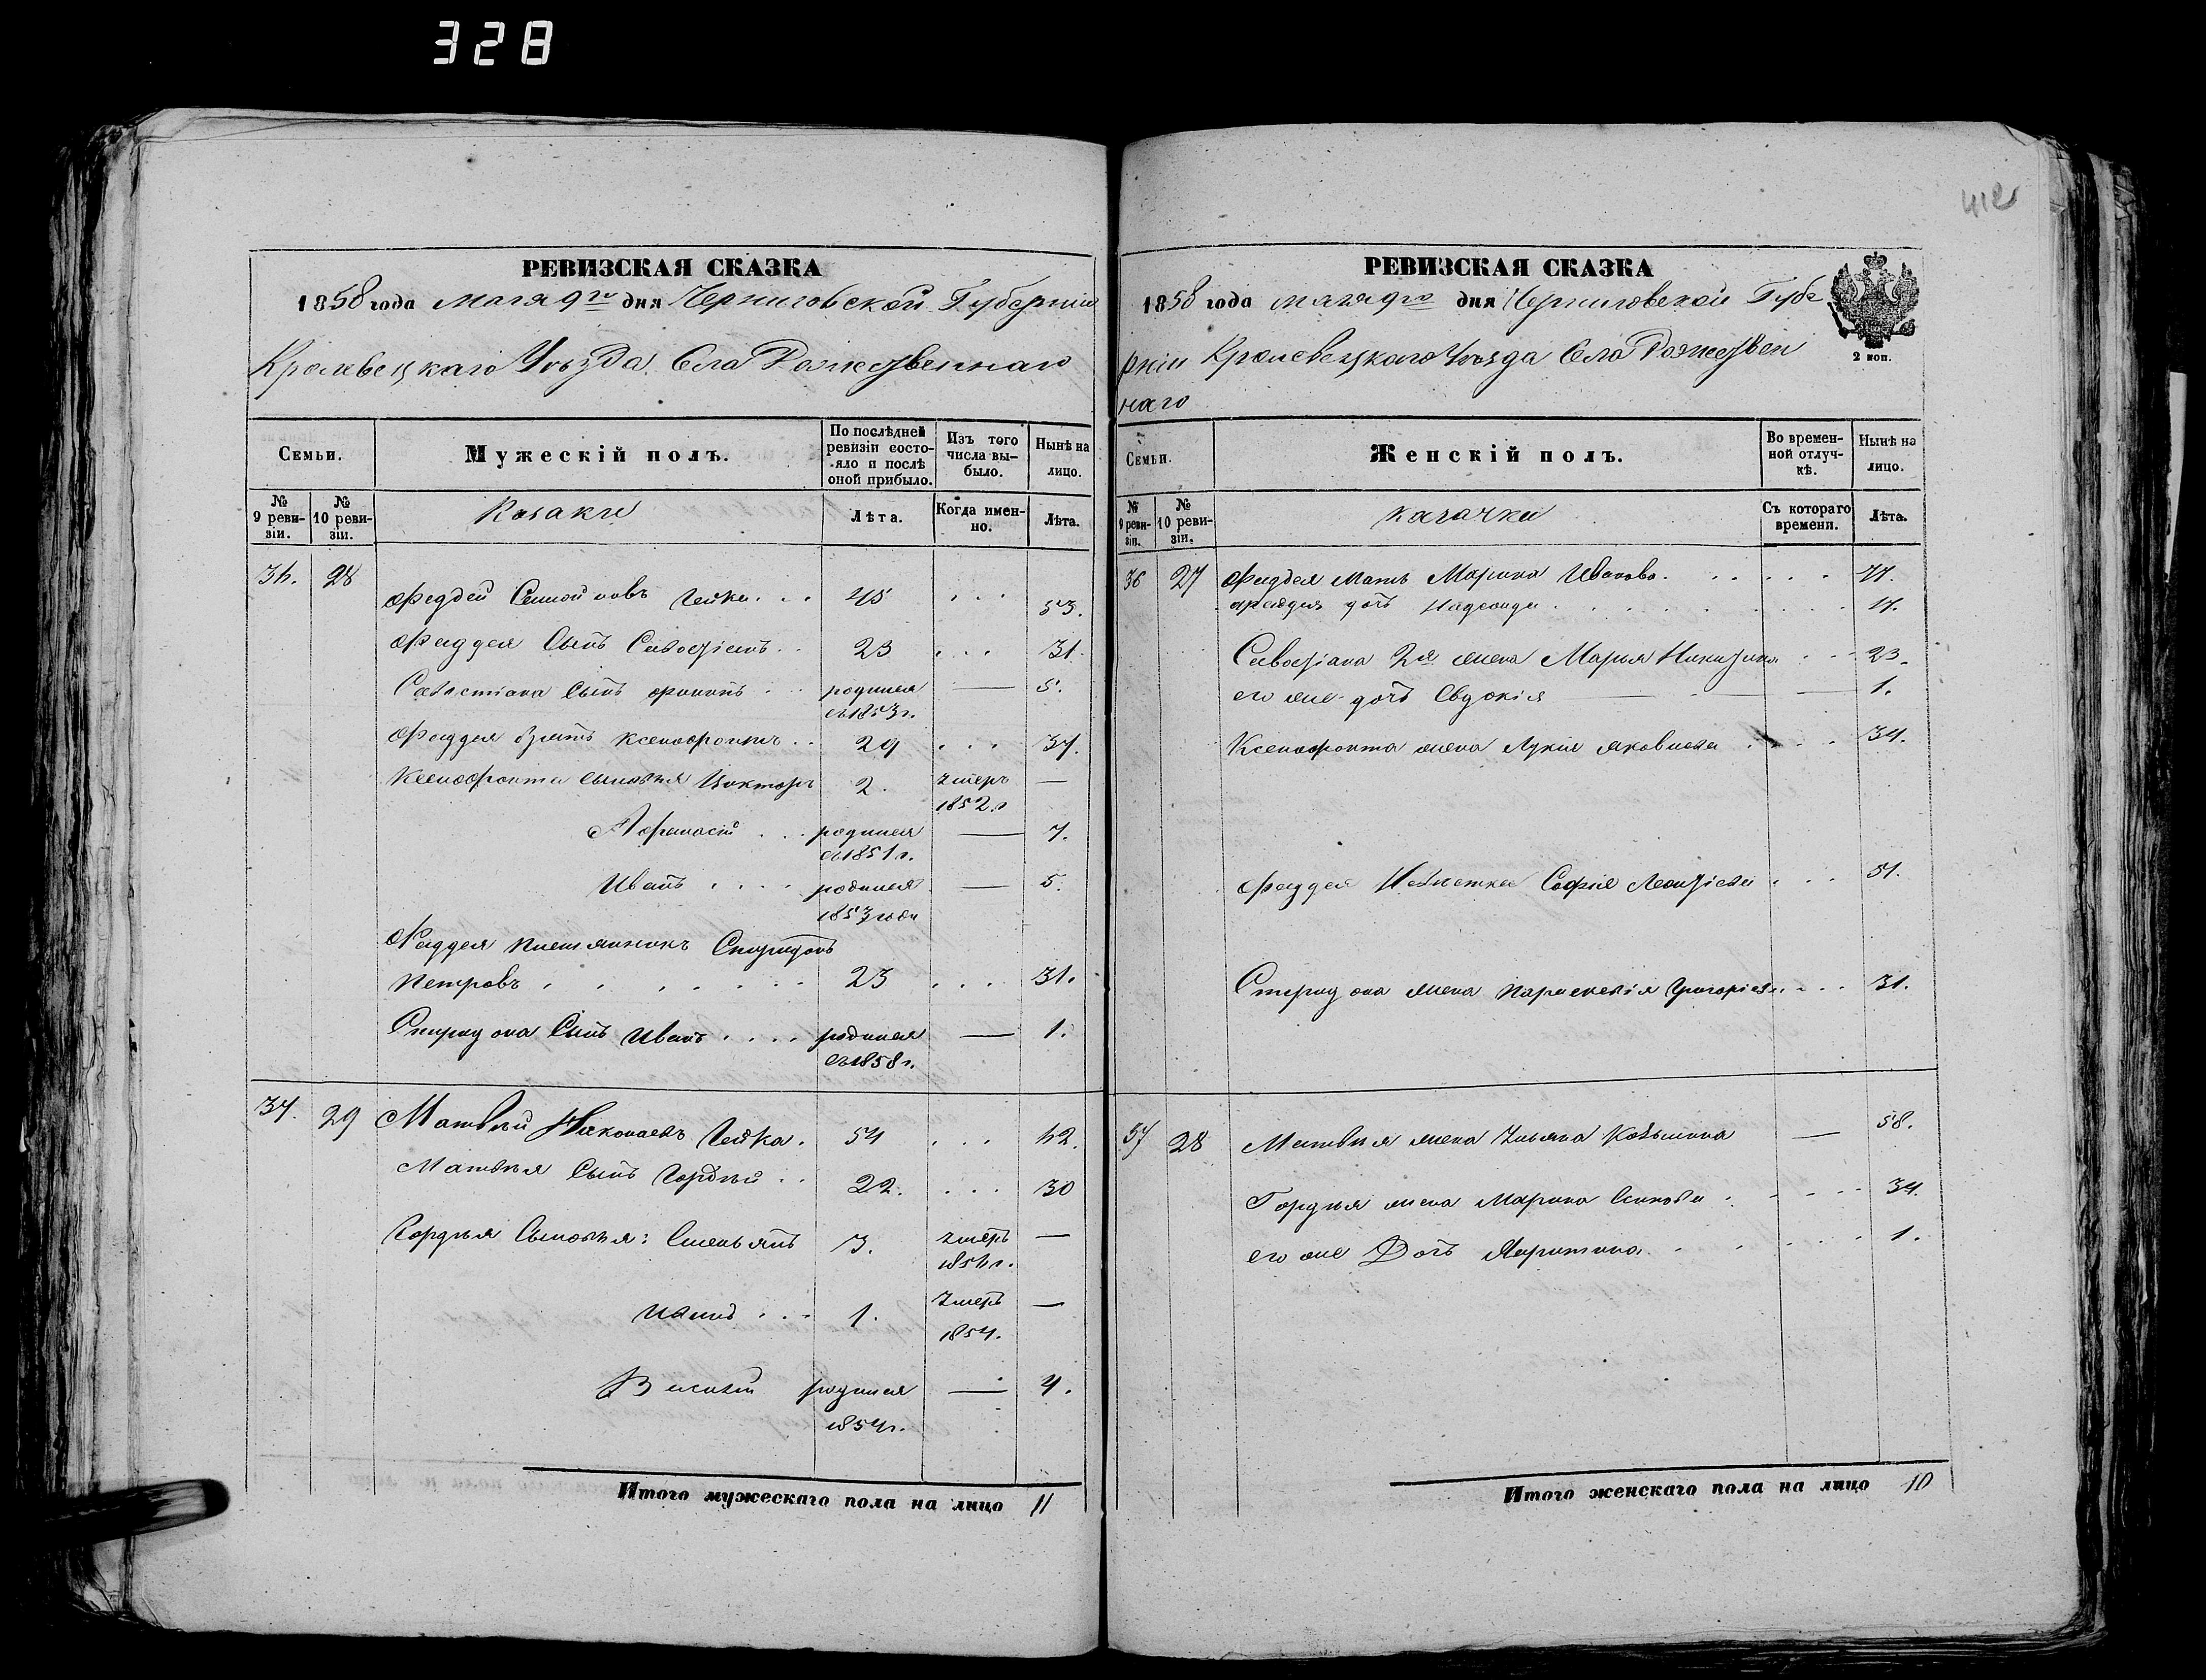 328
412
РЕВИЗСКАЯ СКАЗКА
1858 года мая 9го дня Черниговской Губерніи
Кролевецкаго Уѣзда Села Рожественнаго
Семьи.
Мужескій полъ.
По послѣдней ревизіи состояло и послѣ оной прибыло.
Изъ того числа выбыло.
Нынѣ на лицо.
№ 9 ревизіи.
№ 10 ревизіи.
Казаки
Лѣта.
Когда именно.
Лѣта.
36. 28
Фаддей Семioновъ Чейка . . . 45 . . . 53.
Фаддея Сынъ Савостіанъ . . 23 . . . 31.
Савостіана Сынъ . . родился — 5.
въ 1853 г.
Фаддея Зять Ксенофонтъ . . 29 . . . 37.
Ксенофонта сыновья Викторъ 2. умеръ —
1852 г
Афанасій . . . родился — 7.
въ 1851 г.
Иванъ . . . . родился — 5.
1853 года
Фаддея племянникъ Спиридонъ
Петровъ . . . . . . . 23 . . . 31.
Спиридона Сынъ Иванъ . . . . родился — 1.
въ 1858 г.
37. 29 Матвѣй Николаевъ Чейка. 54 . . . 62.
Матвѣя Сынъ Гордѣй . . 22. . . . 30
Гордѣя Сыновья: Емельянъ 3. умеръ —
185 г.
Иванъ . . . 1. умеръ —
1854.
Василій родился — 4.
1854 г.
Итого мужескаго пола на лицо 11
РЕВИЗСКАЯ СКАЗКА
1858 года мая 9го дня Черниговской Губе
рніи Кролевецкаго Уѣзда Села Рожествен
наго
2 коп.
Семьи.
Женскій полъ.
Во временной отлучкѣ.
Нынѣ на лицо.
№ 9 ревизіи.
№ 10 ревизіи.
казачки
Съ котораго времени.
Лѣта.
36 27 Фаддея Мать Марина Иванова . . . . . . 77.
Фаддея дочь . . . . . . . 17.
Савостіана 2я жена Марья Никитина . . . 23.
его же дочь Евдокія — — 1.
Ксенофонта жена Лукія Яковлева . . . . 34.
Фаддея Невѣстка Софія Леонтіева . . . 51.
Спиридона жена Параскевія Григоріева . . . 31.
37 28 Матвѣя жена Ульяна Козьмина — 58.
Гордѣя жена Марина . . . . 34.
его же Дочь . . . . . 1.
Итого женскаго пола на лицо 10